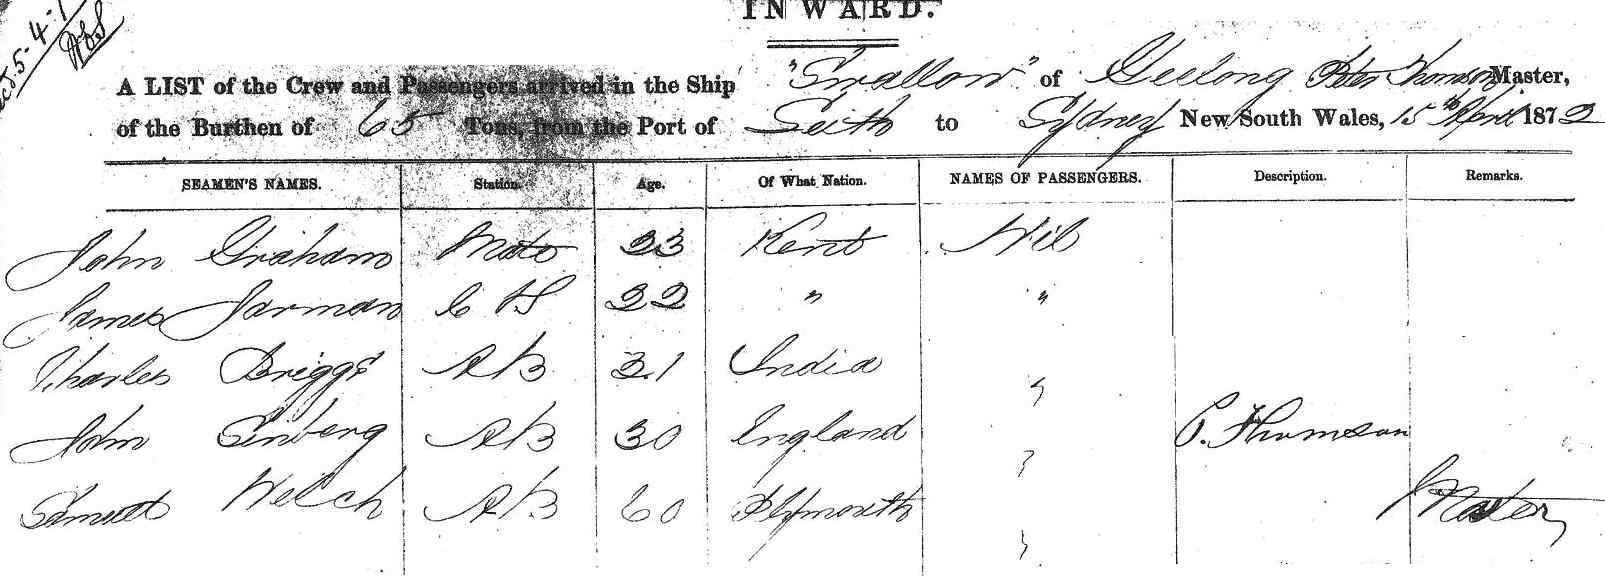 INWARD.
A LIST of the Crew and Passengers arrived in the Ship "Swallow" of Geelong Peter Thomson Master,
of the Burthen of 65 Tons, from the Port of Leith to Sydney New South Wales, 15th April 1872
SEAMEN'S NAMES. Station. Age. Of What Nation. NAMES OF PASSENGERS. Description. Remarks.
John Graham Mate 33 Kent Nil
James Jarman C & S 22 " "
Charles Briggs AB 31 India "
John AB 30 England " P. Thomson
Samuel Welch AB 60 Plymouth " Master